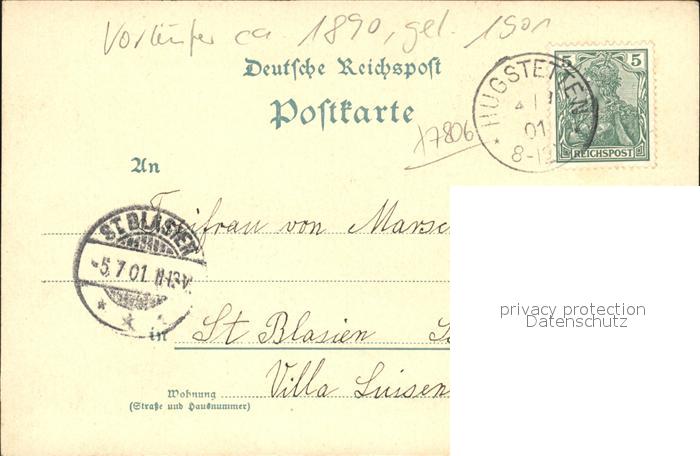 Vorläufer ca 1890, gel. 1901
Deutsche Reichspost
Postkarte
5 5
REICHSPOST
HUGSTETTEN
01
8-12
17806
An
Freifrau von Marsc
ST. BLASIEN
-5.7.01. 11-12V.
in St Blasien
Villa Luisen
Wohnung
(Straße und Hausnummer)
privacy protection
Datenschutz